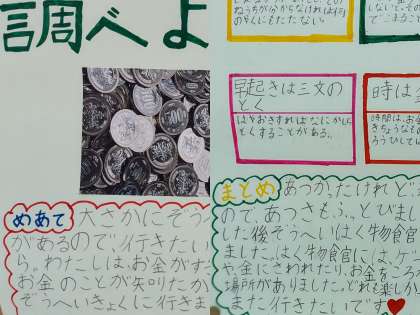 調べよ
ねうちが分からなければ何
のやくにもたたない
早起きは三文の
とく
はやおきすればなにかしら
とくすることがある。
時は
時間は、お金
きちょうなも
ろうひしては
めあて 大さかにぞうへ
があるので行きたい
ら。わたしは、お金がす
お金のことが知りたか
ぞうへいきょくに行きま
まとめ あつかったけれど、
ので、あつさもふっとびまし
した後ぞうへいはく物食官
ました。はく物食官には、ケー
や、金にさわれたり、お金をころ
場所がありました。どれも楽しか
また行きたいです